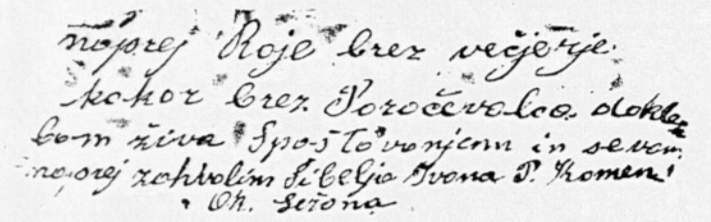 naprej Roje brez večjerje
kakor brez Poročevalca dokler
bom živa Spoštovanjem in se vam
naprej zahvalim Sibelja Ivana P. Komen
Ok. Sežana